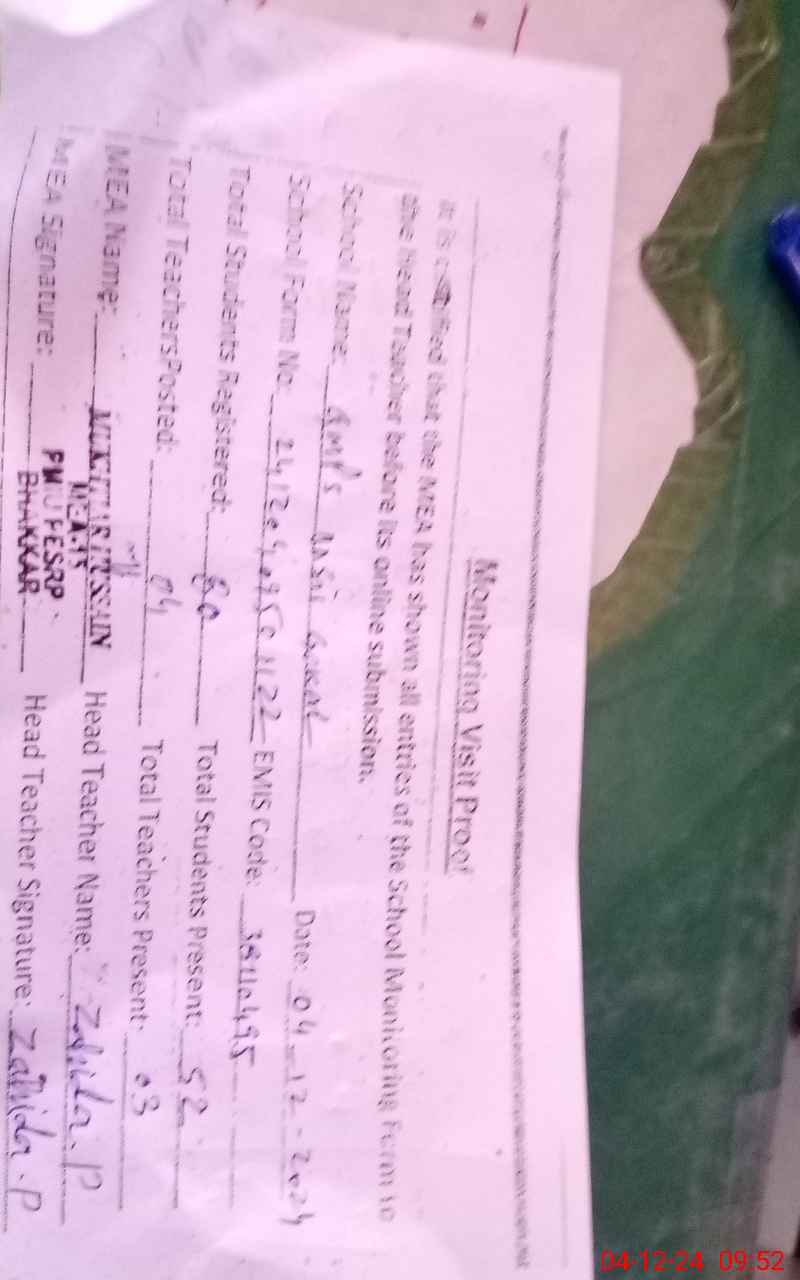 Monitoring Visit Proof
It is certified that the MEA has shown all entries of the School Monitoring Form to
the Head Teacher before its online submission.
School Name: GMPS Date: 04-12-2024
School Form No: EMIS Code:
Total Students Registered: 60 Total Students Present: 52
Total TeachersPosted: 04 Total Teachers Present: 03
MEA Name: MUKHTAR HUSSAIN Head Teacher Name: Zahida.P
MEA-15
MEA Signature: PMIU PESRP Head Teacher Signature: Zahida.P
BHAKKAR
04-12-24 09:52